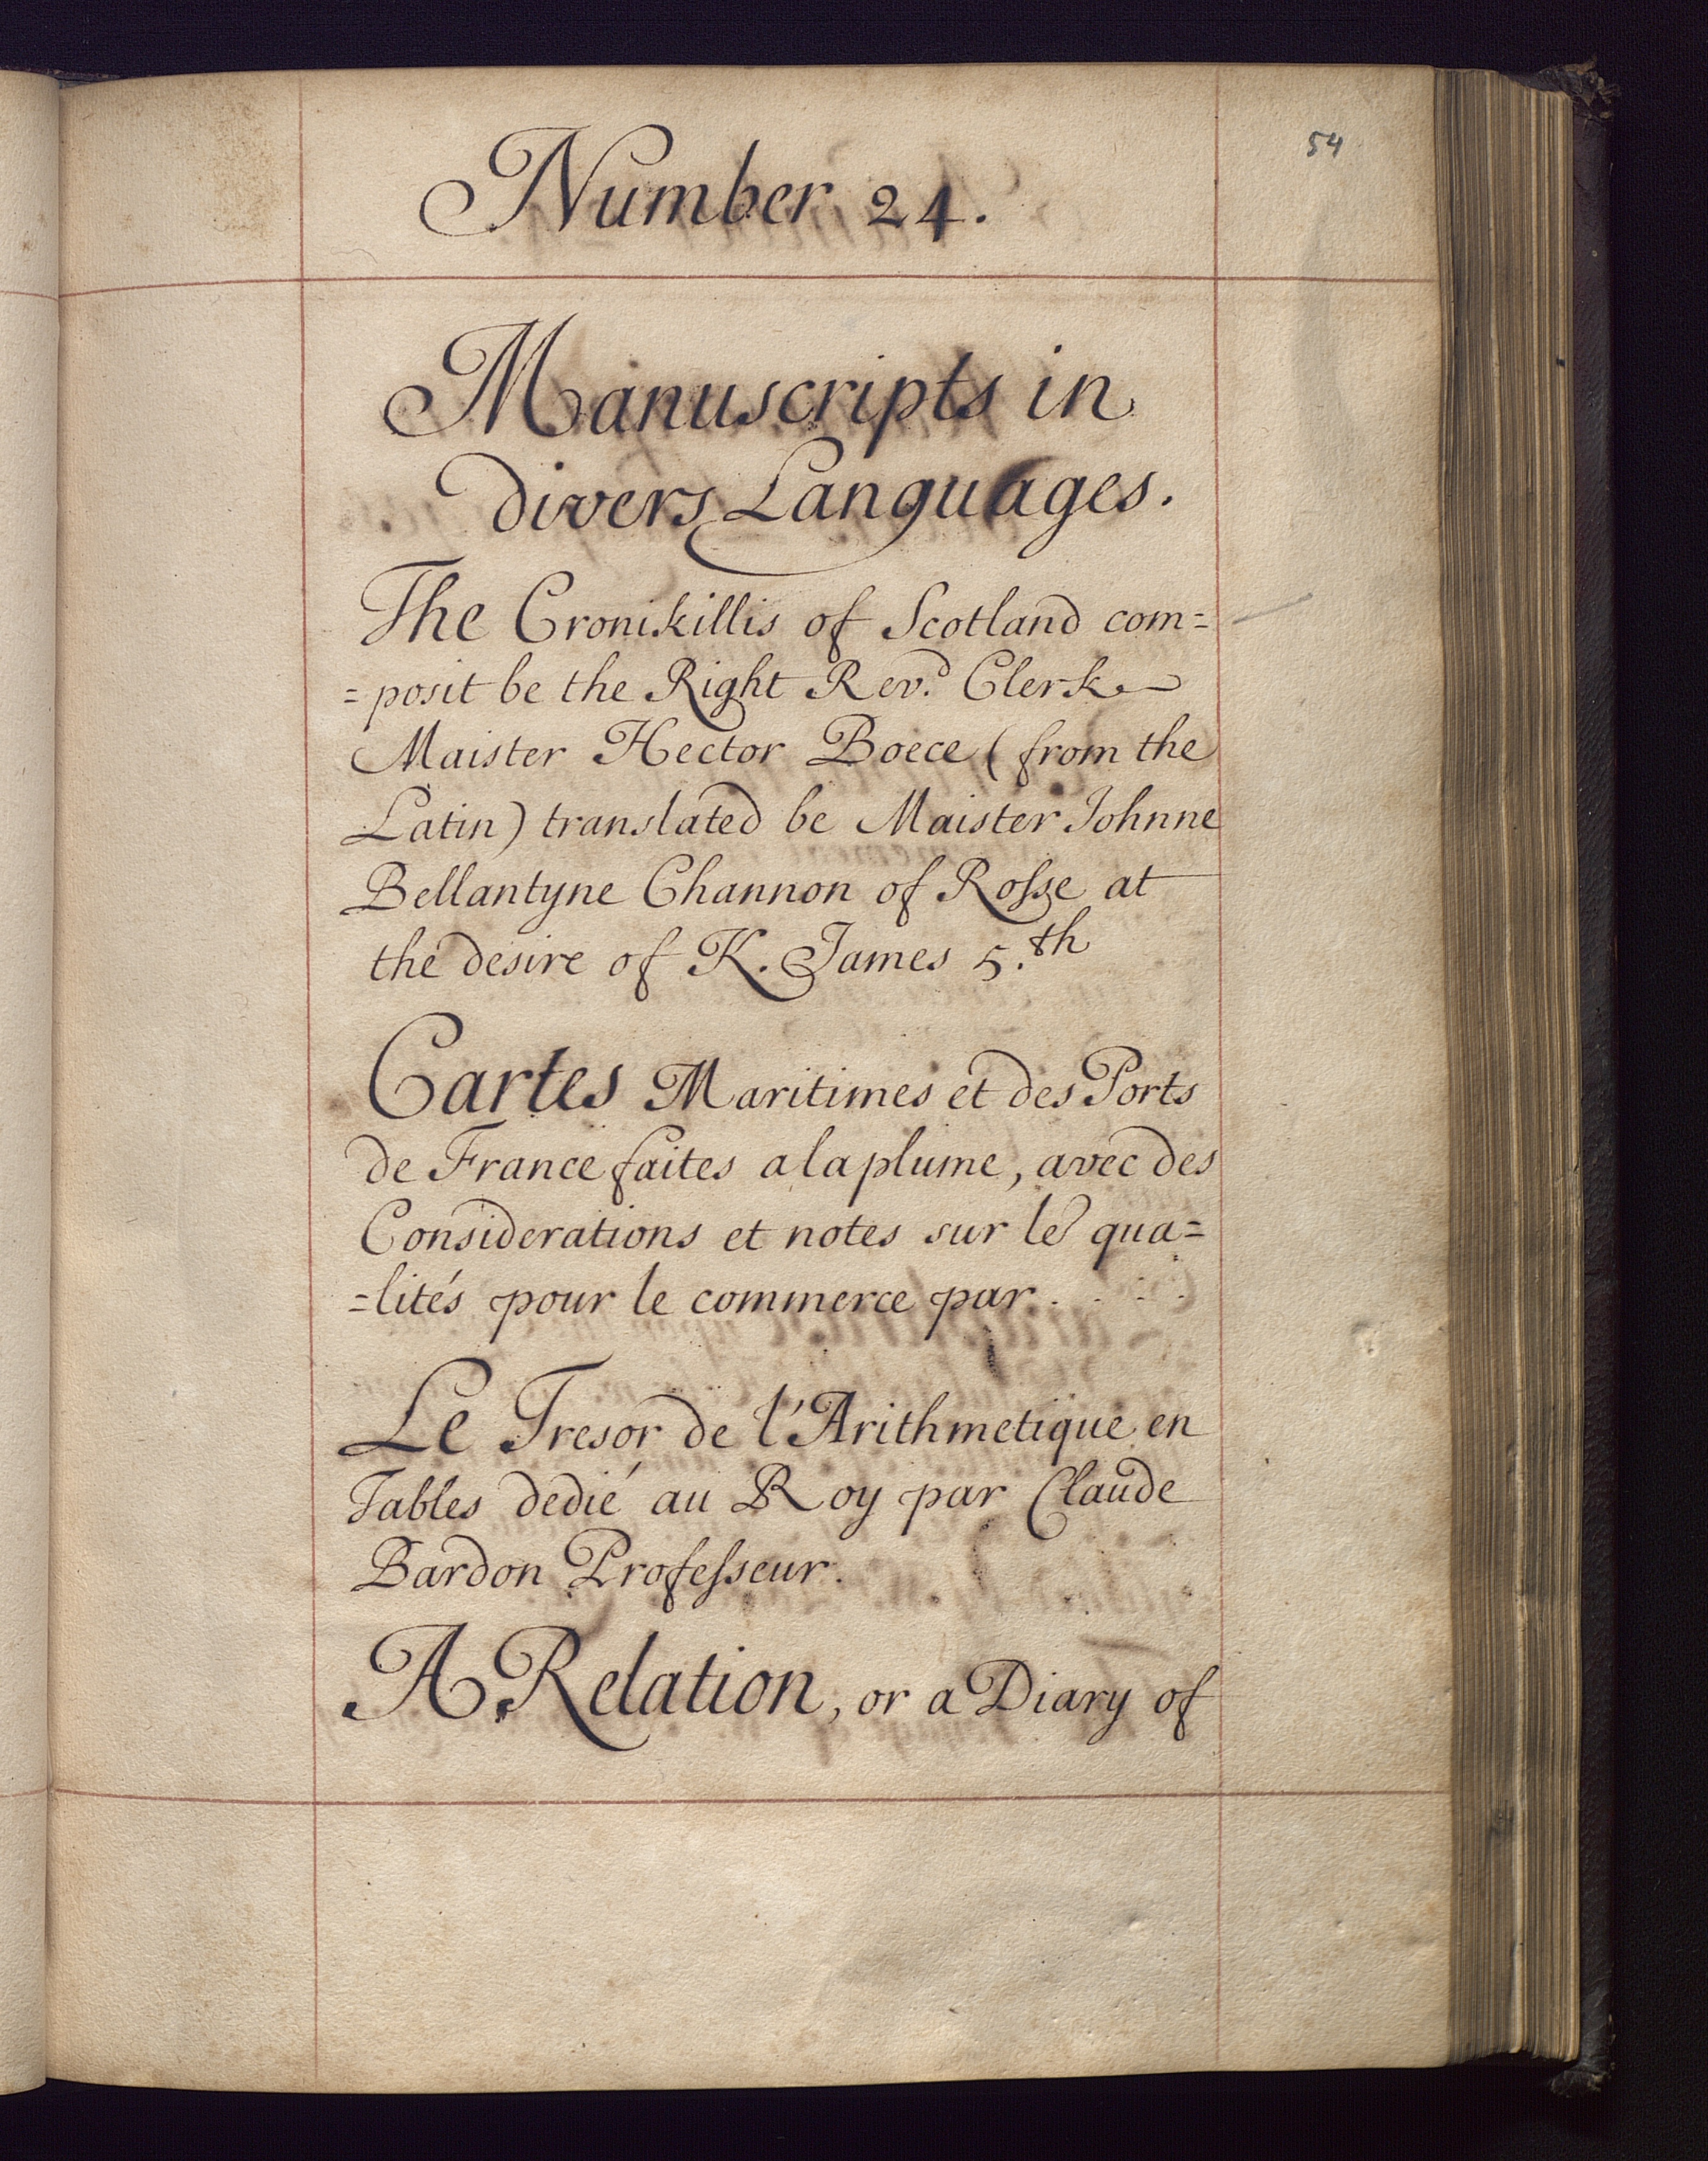 54
Number 24.
Manuscripts in
divers Languages.
The Cronikillis of Scotland com=
=posit be the Right Rev.d Clerk
Maister Hector Boece (from the
Latin) translated be Maister Johnne
Bellantyne Channon of Rosse at
the desire of K. James 5.th
Cartes Maritimes et des Ports
de France faites a la plume, avec des
Considerations et notes sur les qua=
=lités pour le commerce par . . . .
Le Tresor de l'Arithmetique en
Tables dedié au Roy par Claude
Bardon Professeur.
A Relation, or a Diary of